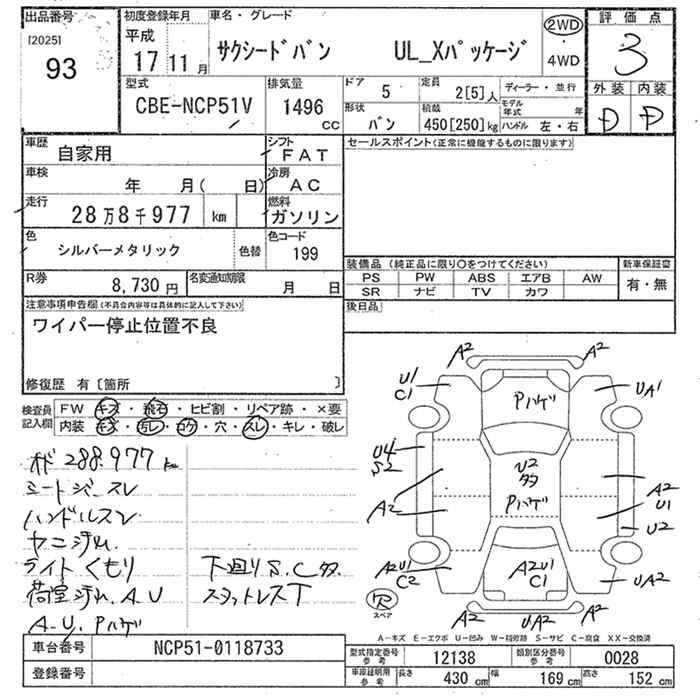 出品番号
[2025]
93
初度登録年月
平成
17 11月
車名・グレード
サクシードバン UL_Xパッケージ
2WD
・
4WD
評価点
3
外装 内装
D D
型式
CBE-NCP51V
排気量
1496 cc
ドア
5
定員
2[5]人
形状
バン
積載
450[250]kg
ディーラー・並行
モデル年式 年
ハンドル 左・右
車歴
自家用
シフト
FAT
車検
年 月( 日)
冷房
AC
走行
28万8千977 km
燃料
ガソリン
色
シルバーメタリック
色替
色コード
199
R券
8,730円
名変通知期限
月 日
セールスポイント(正常に機能するものに限ります)
装備品 (純正品に限り○をつけてください)
PS PW ABS エアB AW
SR ナビ TV カワ
新車保証書
有・無
後日品
注意事項申告欄(不具合内容等は具体的に記入して下さい)
ワイパー停止位置不良
修復歴 有〔箇所 〕
検査員記入欄
FW キズ・飛石・ヒビ割・リペア跡・×要
内装 キズ・汚レ・コゲ・穴・スレ・キレ・破レ
288.977 km
シートジャースレ
ハンドルスレ
ヤニ汚れ
ライトくもり
荷室汚れ.A.U
A.U.Pハゲ
下廻りS.C多
スタットレス下
A2 A2
U1
C1
Pハゲ
UA1
U4
S2
U2
多
Pハゲ
A2
A2
U1
U2
A2U1
C2
A2U1
C1
UA2
R
スペア
A2 UA2 A2
A-キズ E-エクボ U-凹み W-補修跡 S-サビ C-腐食 XX-交換済
車台番号
NCP51-0118733
登録番号
型式指定番号
参考
12138
類別区分番号
参考
0028
車庫証明用
参考
長さ
430 cm
幅
169 cm
高さ
152 cm